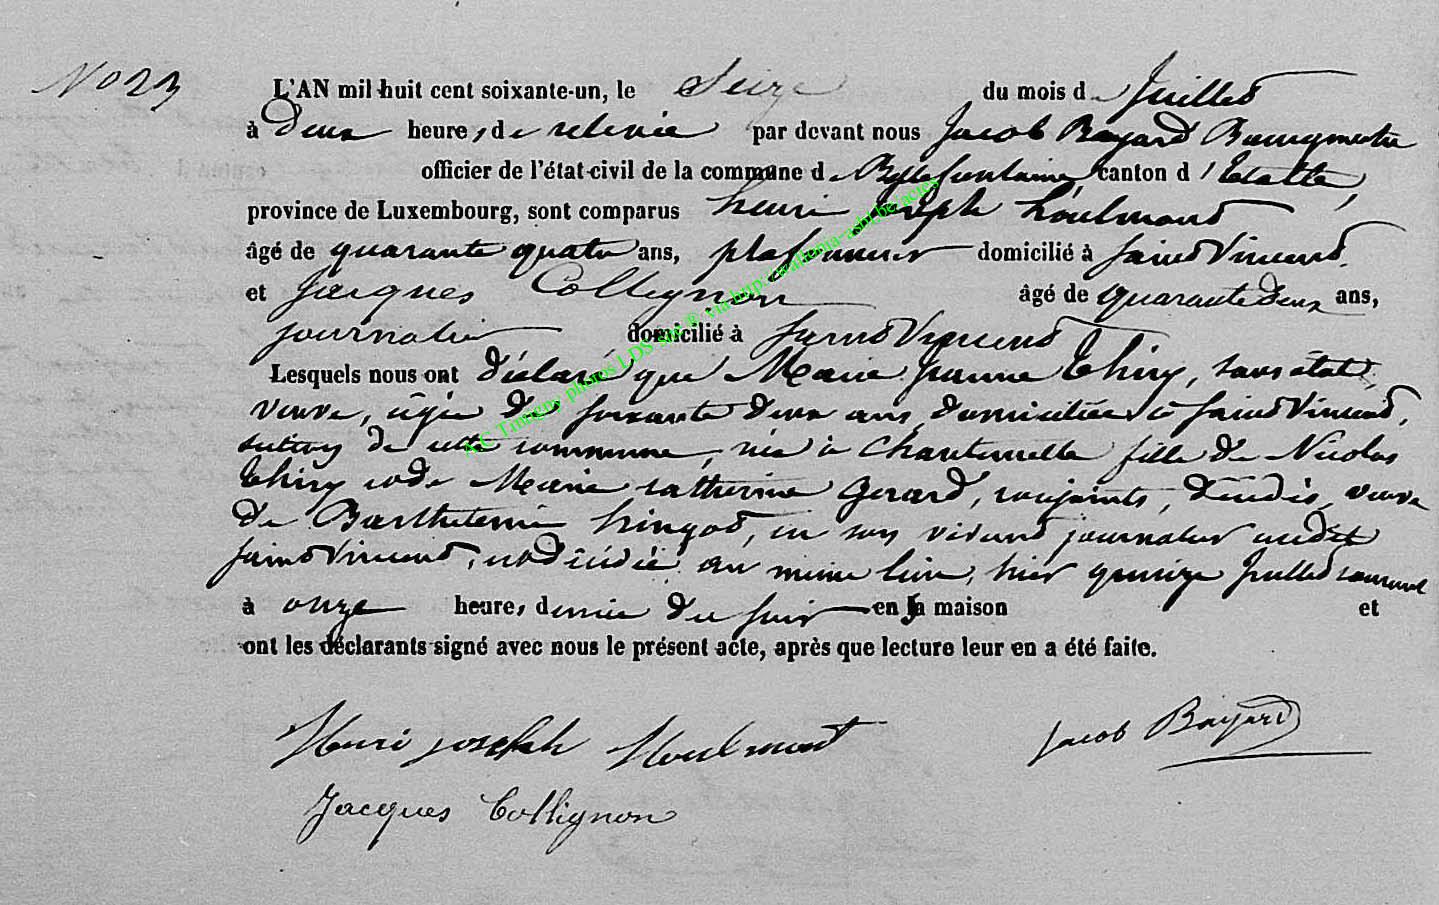 No 23
L'AN mil huit cent soixante-un, le Seize du mois de Juillet
à Deux heures de relevée par devant nous Jacob Bayard Bourgmestre
officier de l'état-civil de la commune de Bellefontaine, canton d'Etalle,
province de Luxembourg, sont comparus henri joseph houlmont
âgé de quarante quatre ans, plafonneur domicilié à Saint Vincent,
et Jacques Collignon âgé de quarante deux ans,
journalier domicilié à Saint Vincent
Lesquels nous ont déclaré que Marie Jeanne Thiry, sans état,
veuve, âgée de soixante deux ans, domiciliée à Saint Vincent,
section de cette commune, née à Chantemelle fille de Nicolas
Thiry et de Marie catherine Gerard, conjoints, décédés, veuve
de Barthelemi hingot, en son vivant journalier audit
Saint Vincent, est décédée au même lieu, hier quinze Juillet courant
à onze heures demie du soir en sa maison et
ont les déclarants signé avec nous le présent acte, après que lecture leur en a été faite.
Henri joseph Houlmont Jacob Bayard
Jacques Collignon
A.C Tintigny photos LDS sur ® via http://wallonia-asbl.be actes